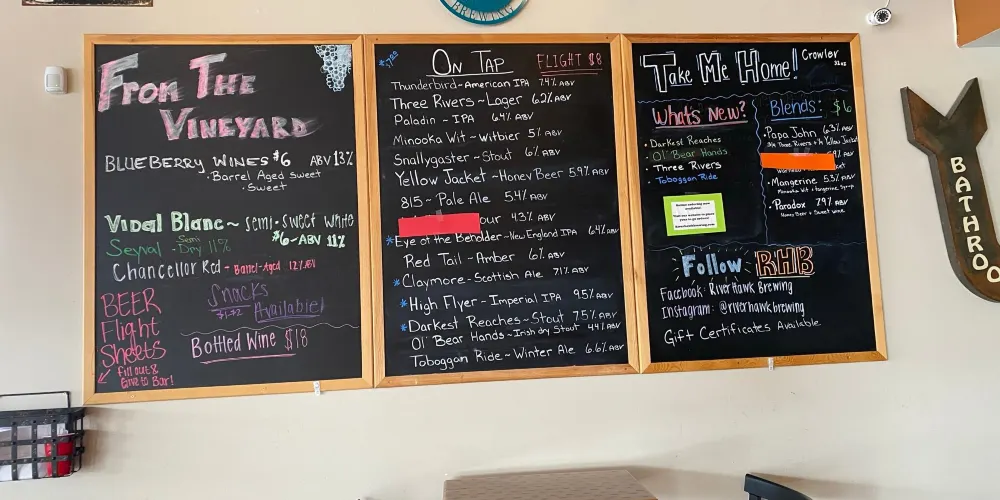 BREWING
From The
Vineyard
BLUEBERRY WINES $6 ABV 13%
· Barrel Aged sweet
· Sweet
Vidal Blanc ~ semi-sweet white
$6-ABV 11%
Seyval - Semi Dry 11%
Chancellor Red - Barrel-Aged 12% ABV
Snacks
$1-$2 Available!
BEER
Flight
Sheets
fill out &
Give to Bar!
Bottled Wine $18
On Tap
FLIGHT $8
Thunderbird ~ American IPA 7.4% ABV
Three Rivers ~ Lager 6.2% ABV
Paladin - IPA 6.4% ABV
Minooka Wit ~ Witbier 5% ABV
Snallygaster ~ Stout 6% ABV
Yellow Jacket ~ Honey Beer 5.9% ABV
815 ~ Pale Ale 5.4% ABV
our 4.3% ABV
*Eye of the Beholder ~ New England IPA 6.4% ABV
Red Tail - Amber 6% ABV
*Claymore - Scottish Ale 7.1% ABV
*High Flyer - Imperial IPA 9.5% ABV
*Darkest Reaches ~ Stout 7.5% ABV
Ol' Bear Hands ~ Irish dry Stout 4.4% ABV
Toboggan Ride ~ Winter Ale 6.6% ABV
Take Me Home!
Crowler
32oz
What's New?
· Darkest Reaches
· Ol' Bear Hands
· Three Rivers
· Toboggan Ride
Blends: $6
· Papa John 6.3% ABV
3/4 Three Rivers + 1/4 Yellow Jacket
· Mangerine 5.3% ABV
Minooka Wit + Tangerine Syrup
· Paradox 7.9% ABV
Honey Beer + Sweet wine
Follow RHB
Facebook: River Hawk Brewing
Instagram: @riverhawkbrewing
Gift Certificates Available
BATHROO